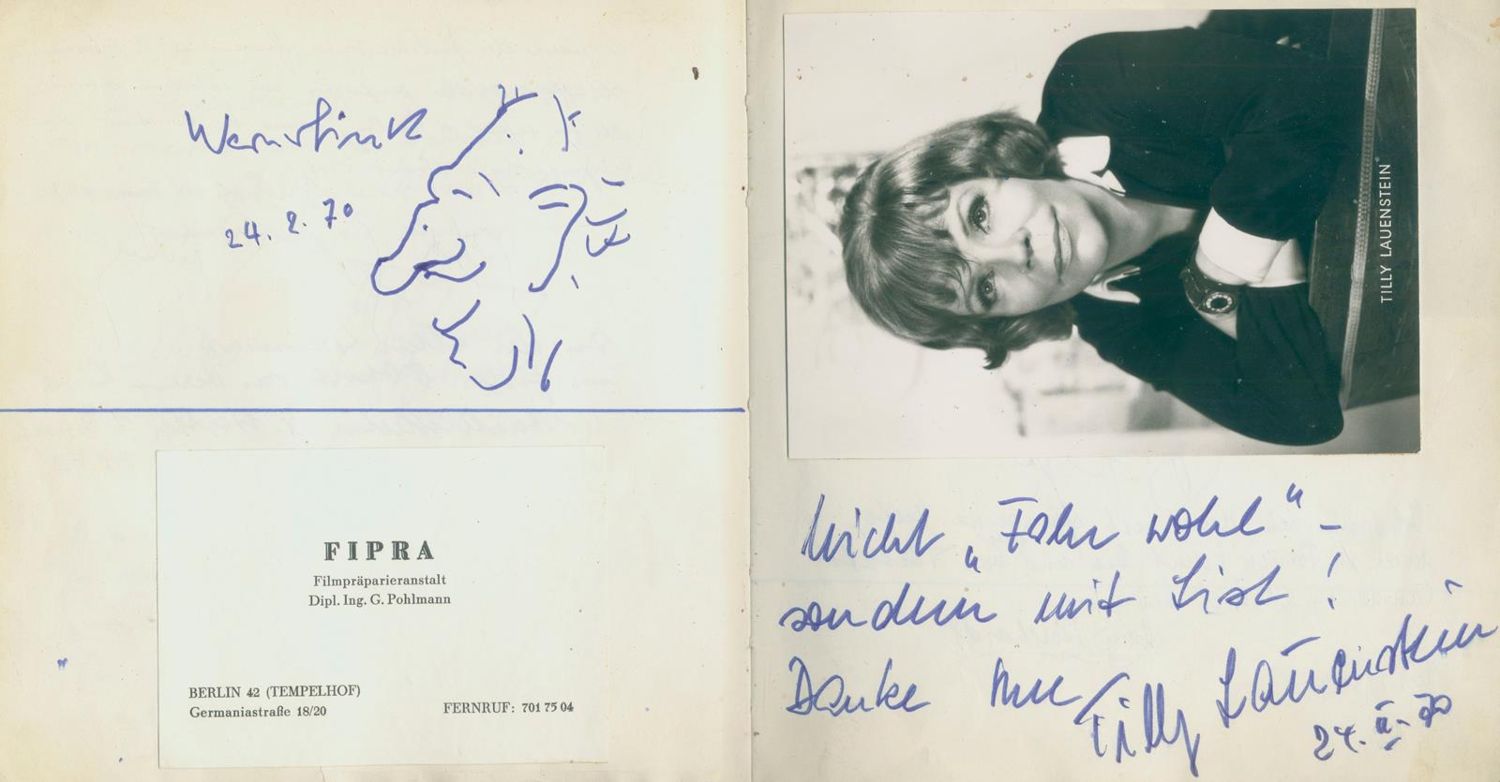 Werner Finck
24. 2. 70
FIPRA
Filmpräparieranstalt
Dipl. Ing. G. Pohlmann
BERLIN 42 (TEMPELHOF)
Germaniastraße 18/20
FERNRUF: 701 75 04
TILLY LAUENSTEIN
Nicht „Fahr wohl" –
sondern mit List!
Danke
Tilly Lauenstein
24. II. 70